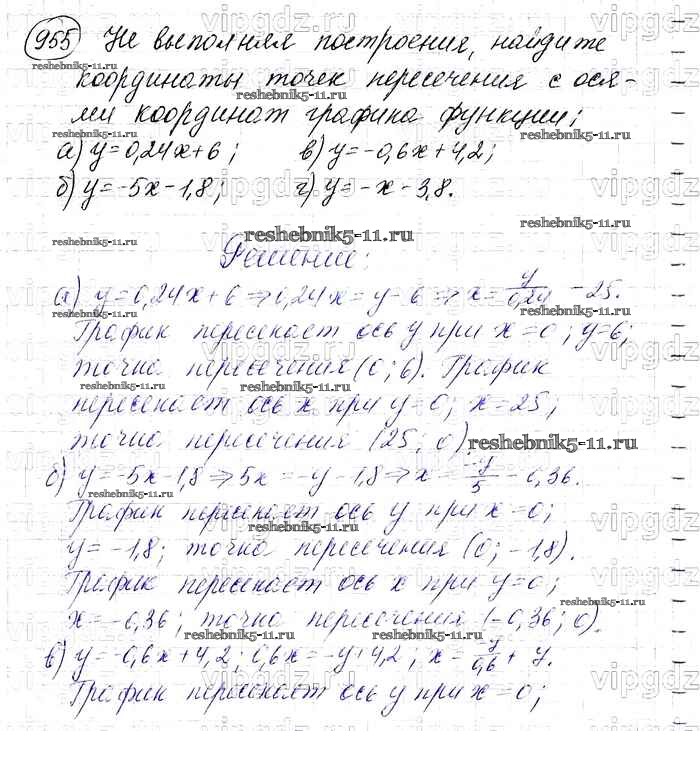 955 Не выполняя построения, найдите
координаты точек пересечения с ося-
ми координат графика функции:
а) y=0,24x+6; в) y=-0,6x+4,2;
б) y=-5x-1,8; г) y=-x-3,8.
Решение:
а) y=0,24x+6 ⇒ 0,24x=y-6 ⇒ x=y/0,24 -25.
График пересекает ось y при x=0; y=6;
точка пересечения (0; 6). График
пересекает ось x при y=0; x=25;
точка пересечения (25; 0).
б) y=-5x-1,8 ⇒ 5x=-y-1,8 ⇒ x=-y/5 -0,36.
График пересекает ось y при x=0;
y=-1,8; точка пересечения (0; -1,8).
График пересекает ось x при y=0;
x=-0,36; точка пересечения (-0,36; 0).
в) y=-0,6x+4,2; 0,6x=-y+4,2; x=-y/0,6 + y.
График пересекает ось y при x=0;
reshebnik5-11.ru
vipgdz